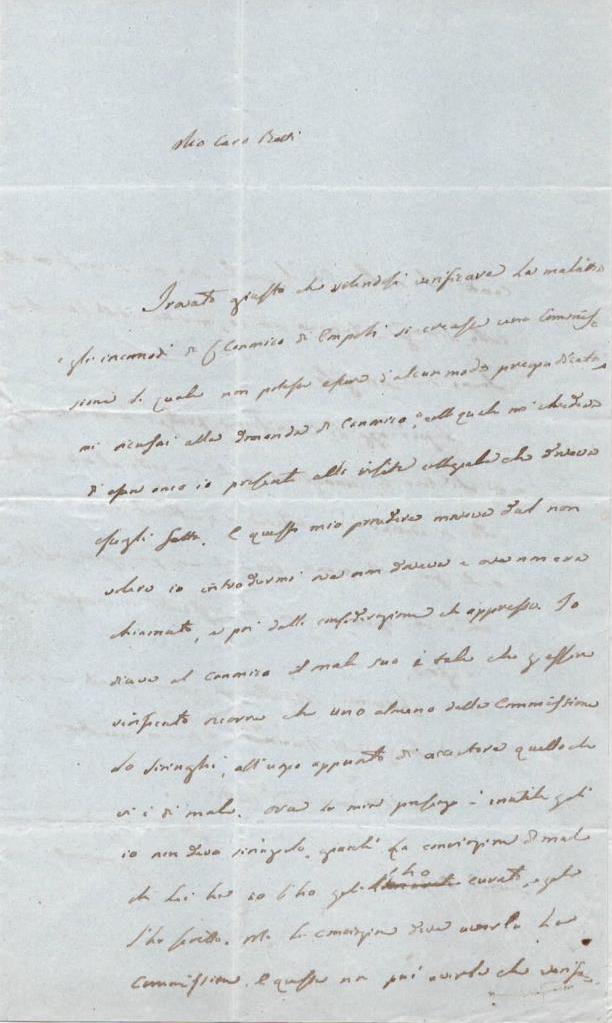 Mio Caro Betti
Trovato giusto che volendosi verificare la malattia
e gli incomodi di Canonico di Empoli si creasse una Commis
sione la quale non potesse essere d'alcun modo pregiudicata,
mi ricusai alla domanda di Canonico, colla quale mi chiedeva
di esser anco io presente alle visite collegiale che doveva
essergli fatta. E questo mio prudere moveva dal non
volere io introdurmi ove non doveva e ove non era
chiamato, e poi dalle considerazione che appresso. Io
diceva al Canonico il male suo è tale che per esser
verificato occorre che uno almeno della Commissione
lo siringhi, all'uopo appunto di accertare quello che
vi è di male. Ora la mia presenza è inutile
io non devo siringarlo, la convinzione di male
di lui io l'ho l'ho curato, e
l'ho scritto. Ma la convinzione deve averla la
Commissione. E questa non può averla che verifi